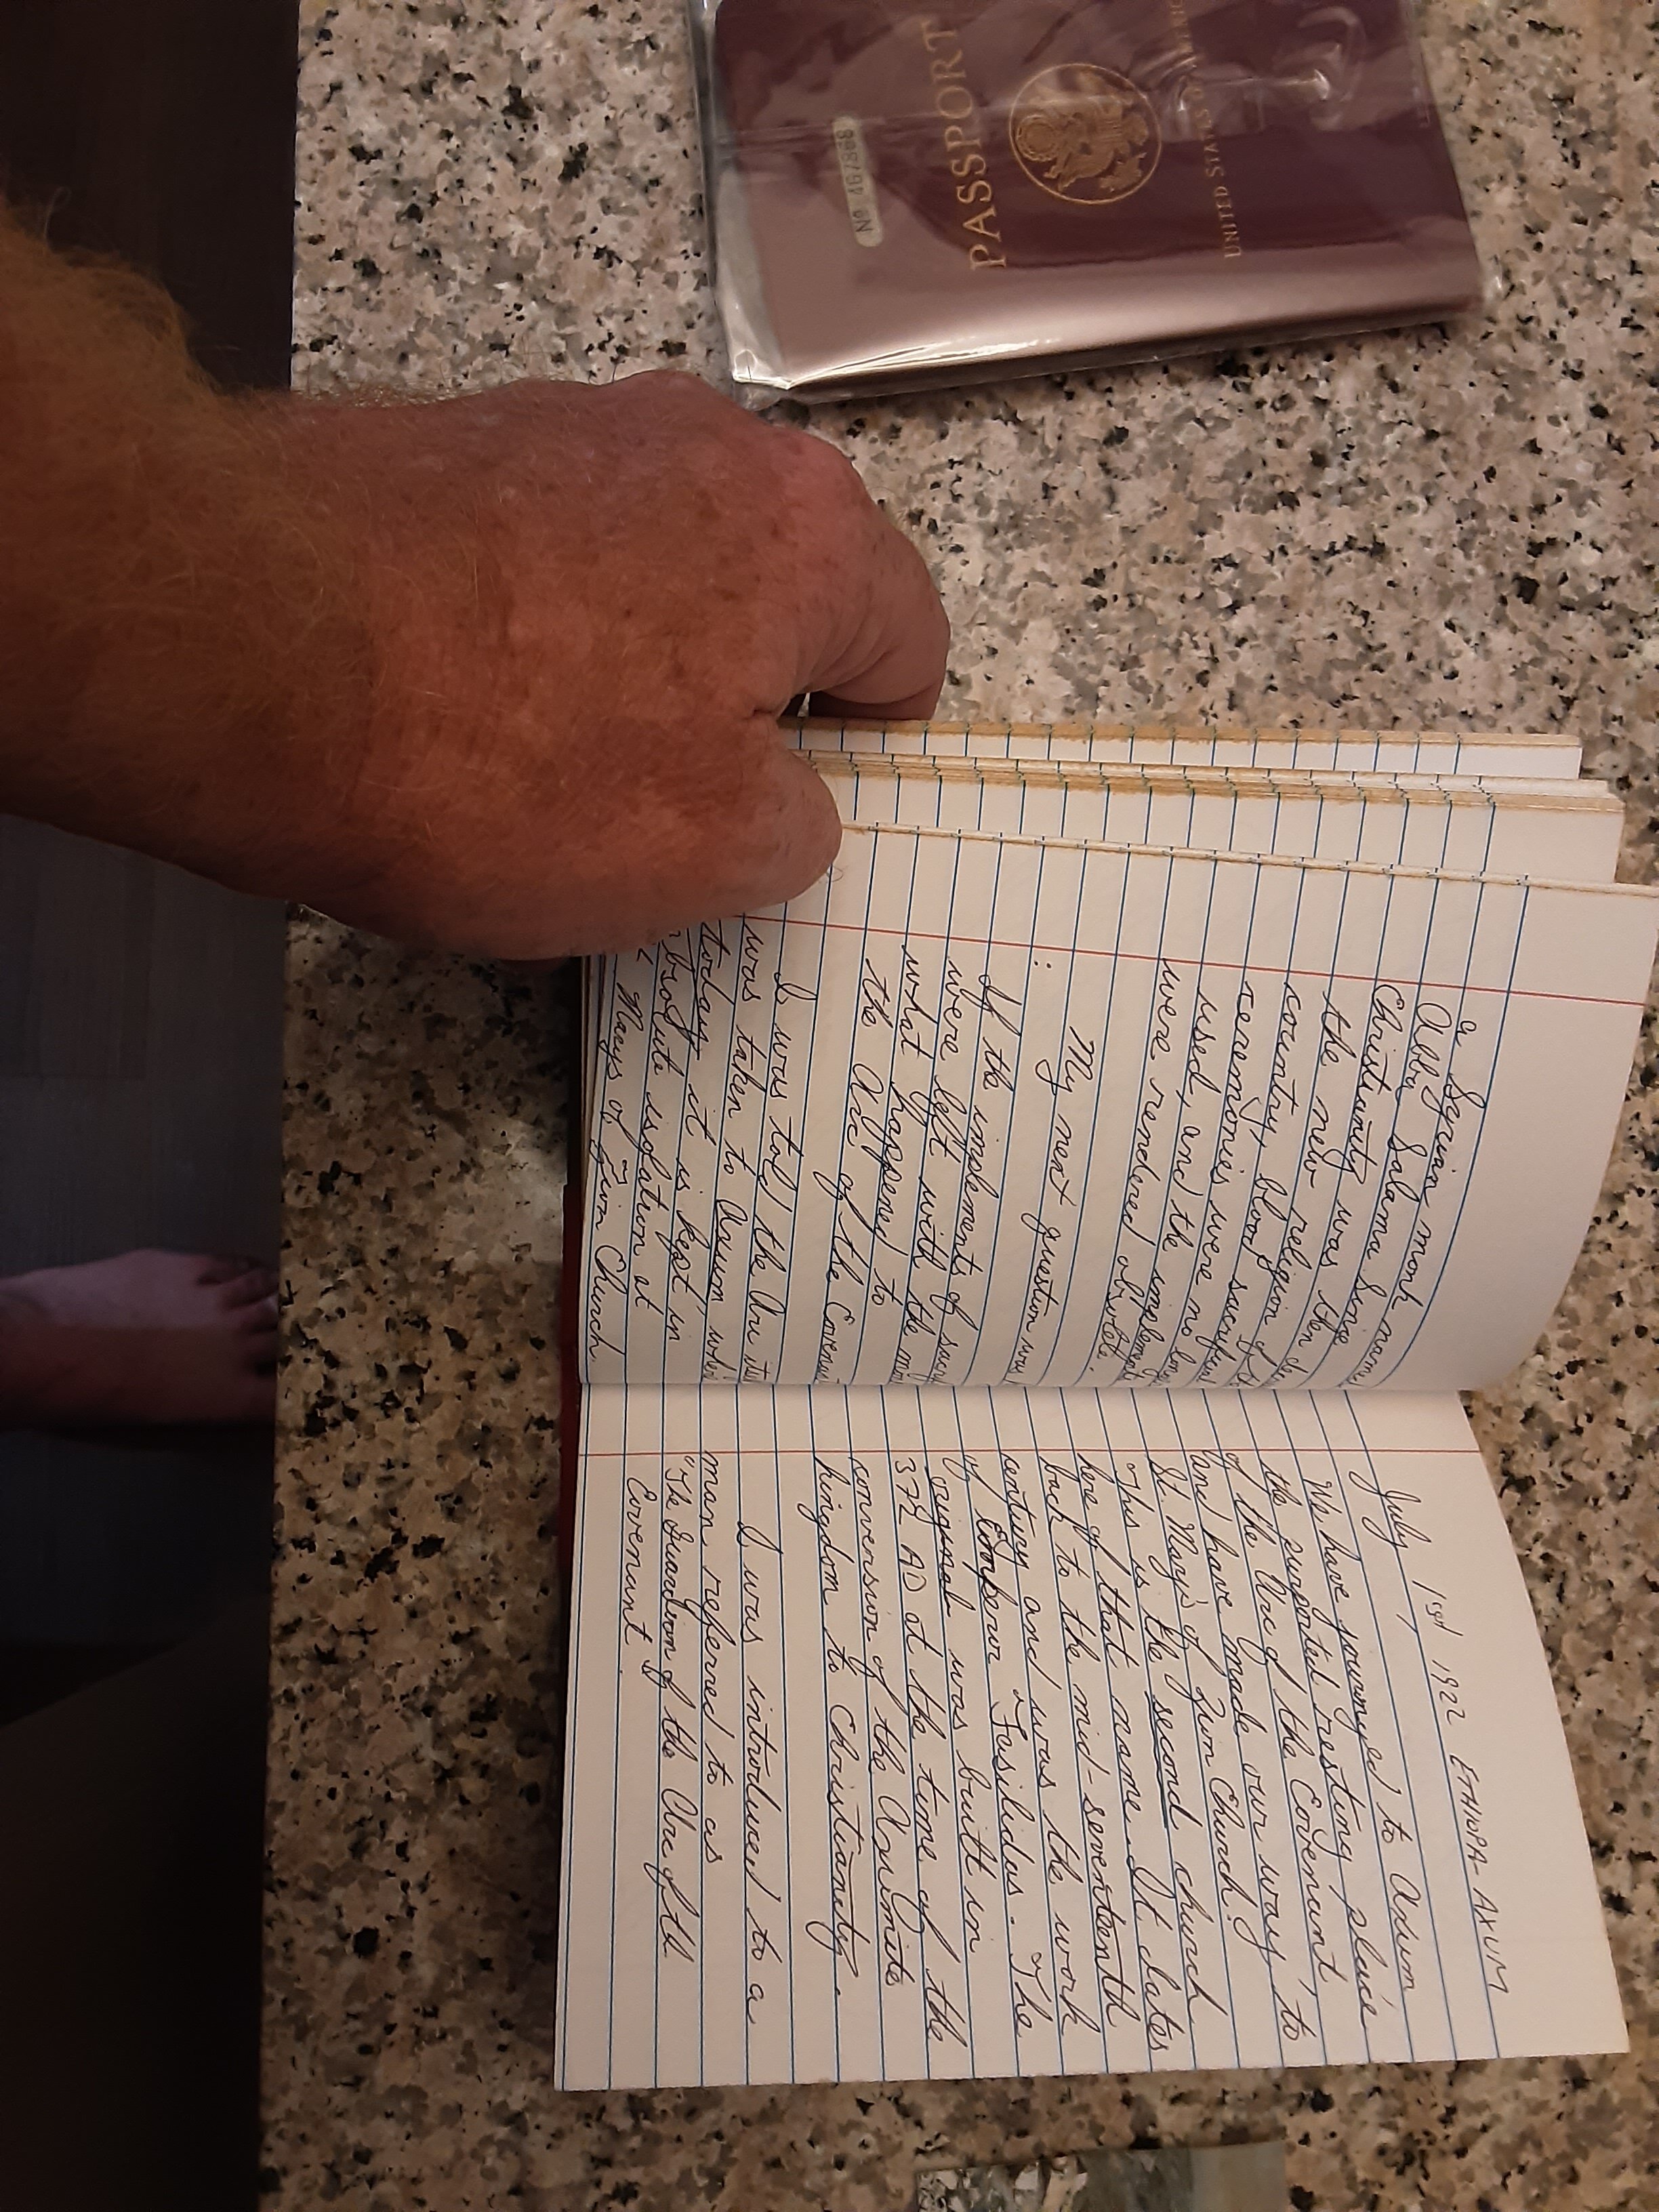 PASSPORT
No 467868
UNITED STATES OF AMERICA
a Syrian monk named
Abba Salama. Since
Christianity was then
the new religion of the
country, blood sacrifices
ceremonies were no longer
used, and the implements
were rendered obsolete.
My next question was
:
If the implements of
were left with the
what happened to
the Arc of the Covenant
I was told the Arc
was taken to Axum where
today it is kept in
absolute isolation at
Marys of Zion Church.
July 1st 1922 ETHIOPA - AXUM
We have journeyed to Axum
the purported resting place
of the Arc of the Covenant
and have made our way to
St. Mary's of Zion Church.
This is the second church
here of that name. It dates
back to the mid-seventeenth
century and was the work
of Emperor Fasilidas. The
original was built in
372 AD at the time of the
conversion of the Axumite
kingdom to Christianity.
I was introduced to a
man referred to as
"The Guardian of the Arc of
Covenant.